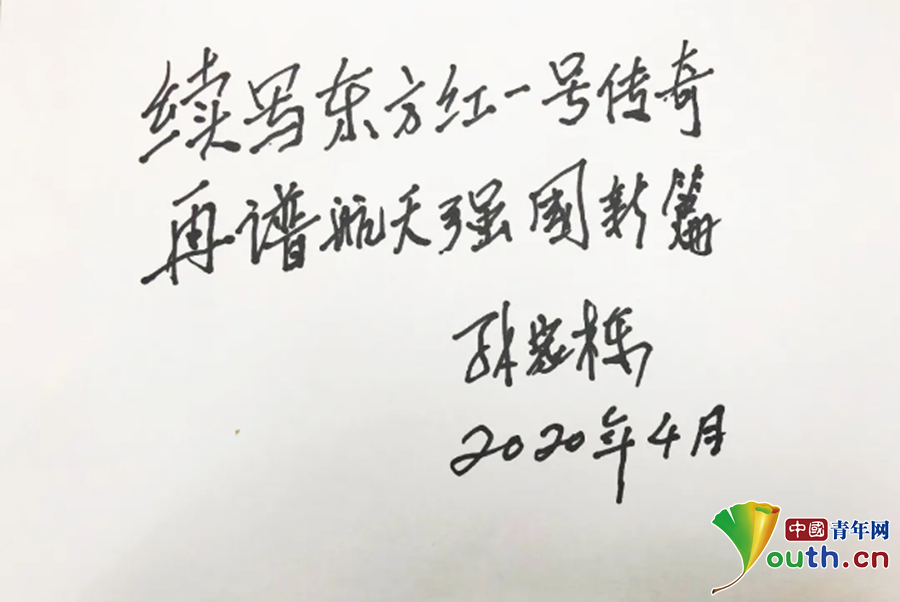 续写东方红一号传奇
再谱航天强国新篇
孙家栋
2020年4月
中國青年网
youth.cn